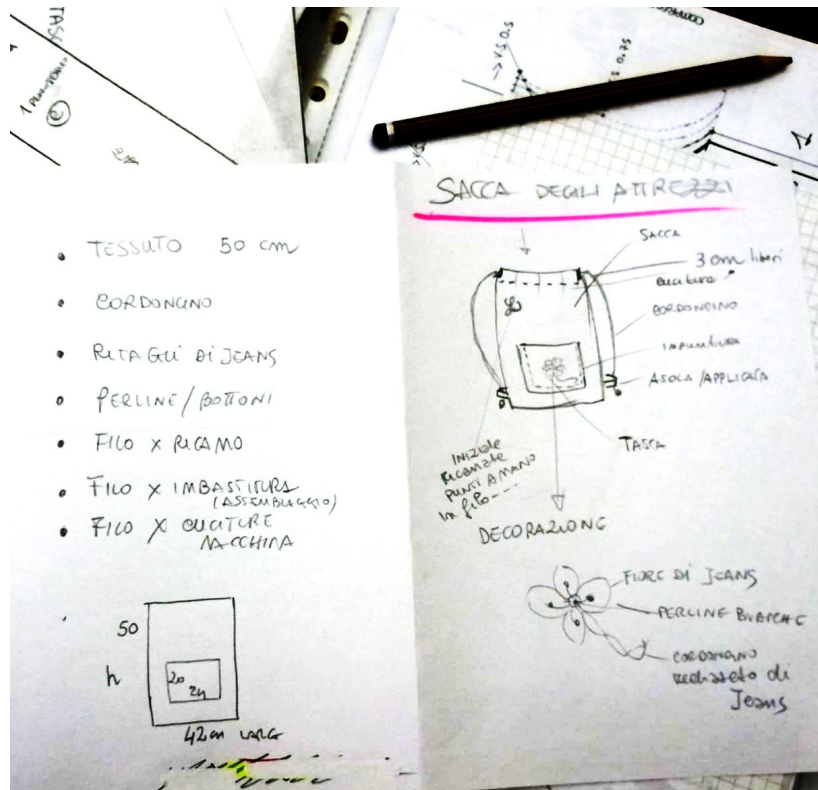 TASC
SACCA DEGLI ATTREZZI
• TESSUTO 50 cm
• CORDONCINO
• RITAGLI DI JEANS
• PERLINE/BOTTONI
• FILO X RICAMO
• FILO X IMBASTITURA
(ASSEMBLAGGIO)
• FILO X CUCITURE
MACCHINA
50
h
20
24
42cm LARG
SACCA
3 cm liberi
cucitura
CORDONCINO
IMPUNTURA
ASOLA/APPLICATA
TASCA
INIZIALE
RICAMATE
PUNTI A MANO
In filo----
DECORAZIONE
FIORE DI JEANS
PERLINE BIANCHE
CORDONCINO
di
Jeans